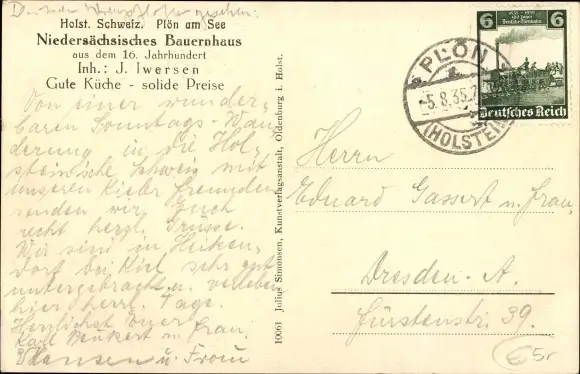 Holst. Schweiz. Plön am See
Niedersächsisches Bauernhaus
aus dem 16. Jahrhundert
Inh.: J. Iwersen
Gute Küche - solide Preise
Von einer wunder-
baren Sonntags-Wan-
derung in die Hol-
steinische Schweiz mit
unseren Kieler Freunden
senden wir Euch
recht herzl. Grüsse.
Wir sind in Heiken-
dorf bei Kiel sehr gut
untergebracht u. verleben
hier herrl. Tage.
Herzlichst Euer
Karl u. Frau.
Hansen u. Frau
10061 Julius Simonsen, Kunstverlagsanstalt, Oldenburg i. Holst.
6 6
Deutsches Reich
PLÖN
-5.8.35.
(HOLSTEIN)
Herrn
Eduard Gassert u. Frau,
Dresden-A.
Fürstenstr. 39.